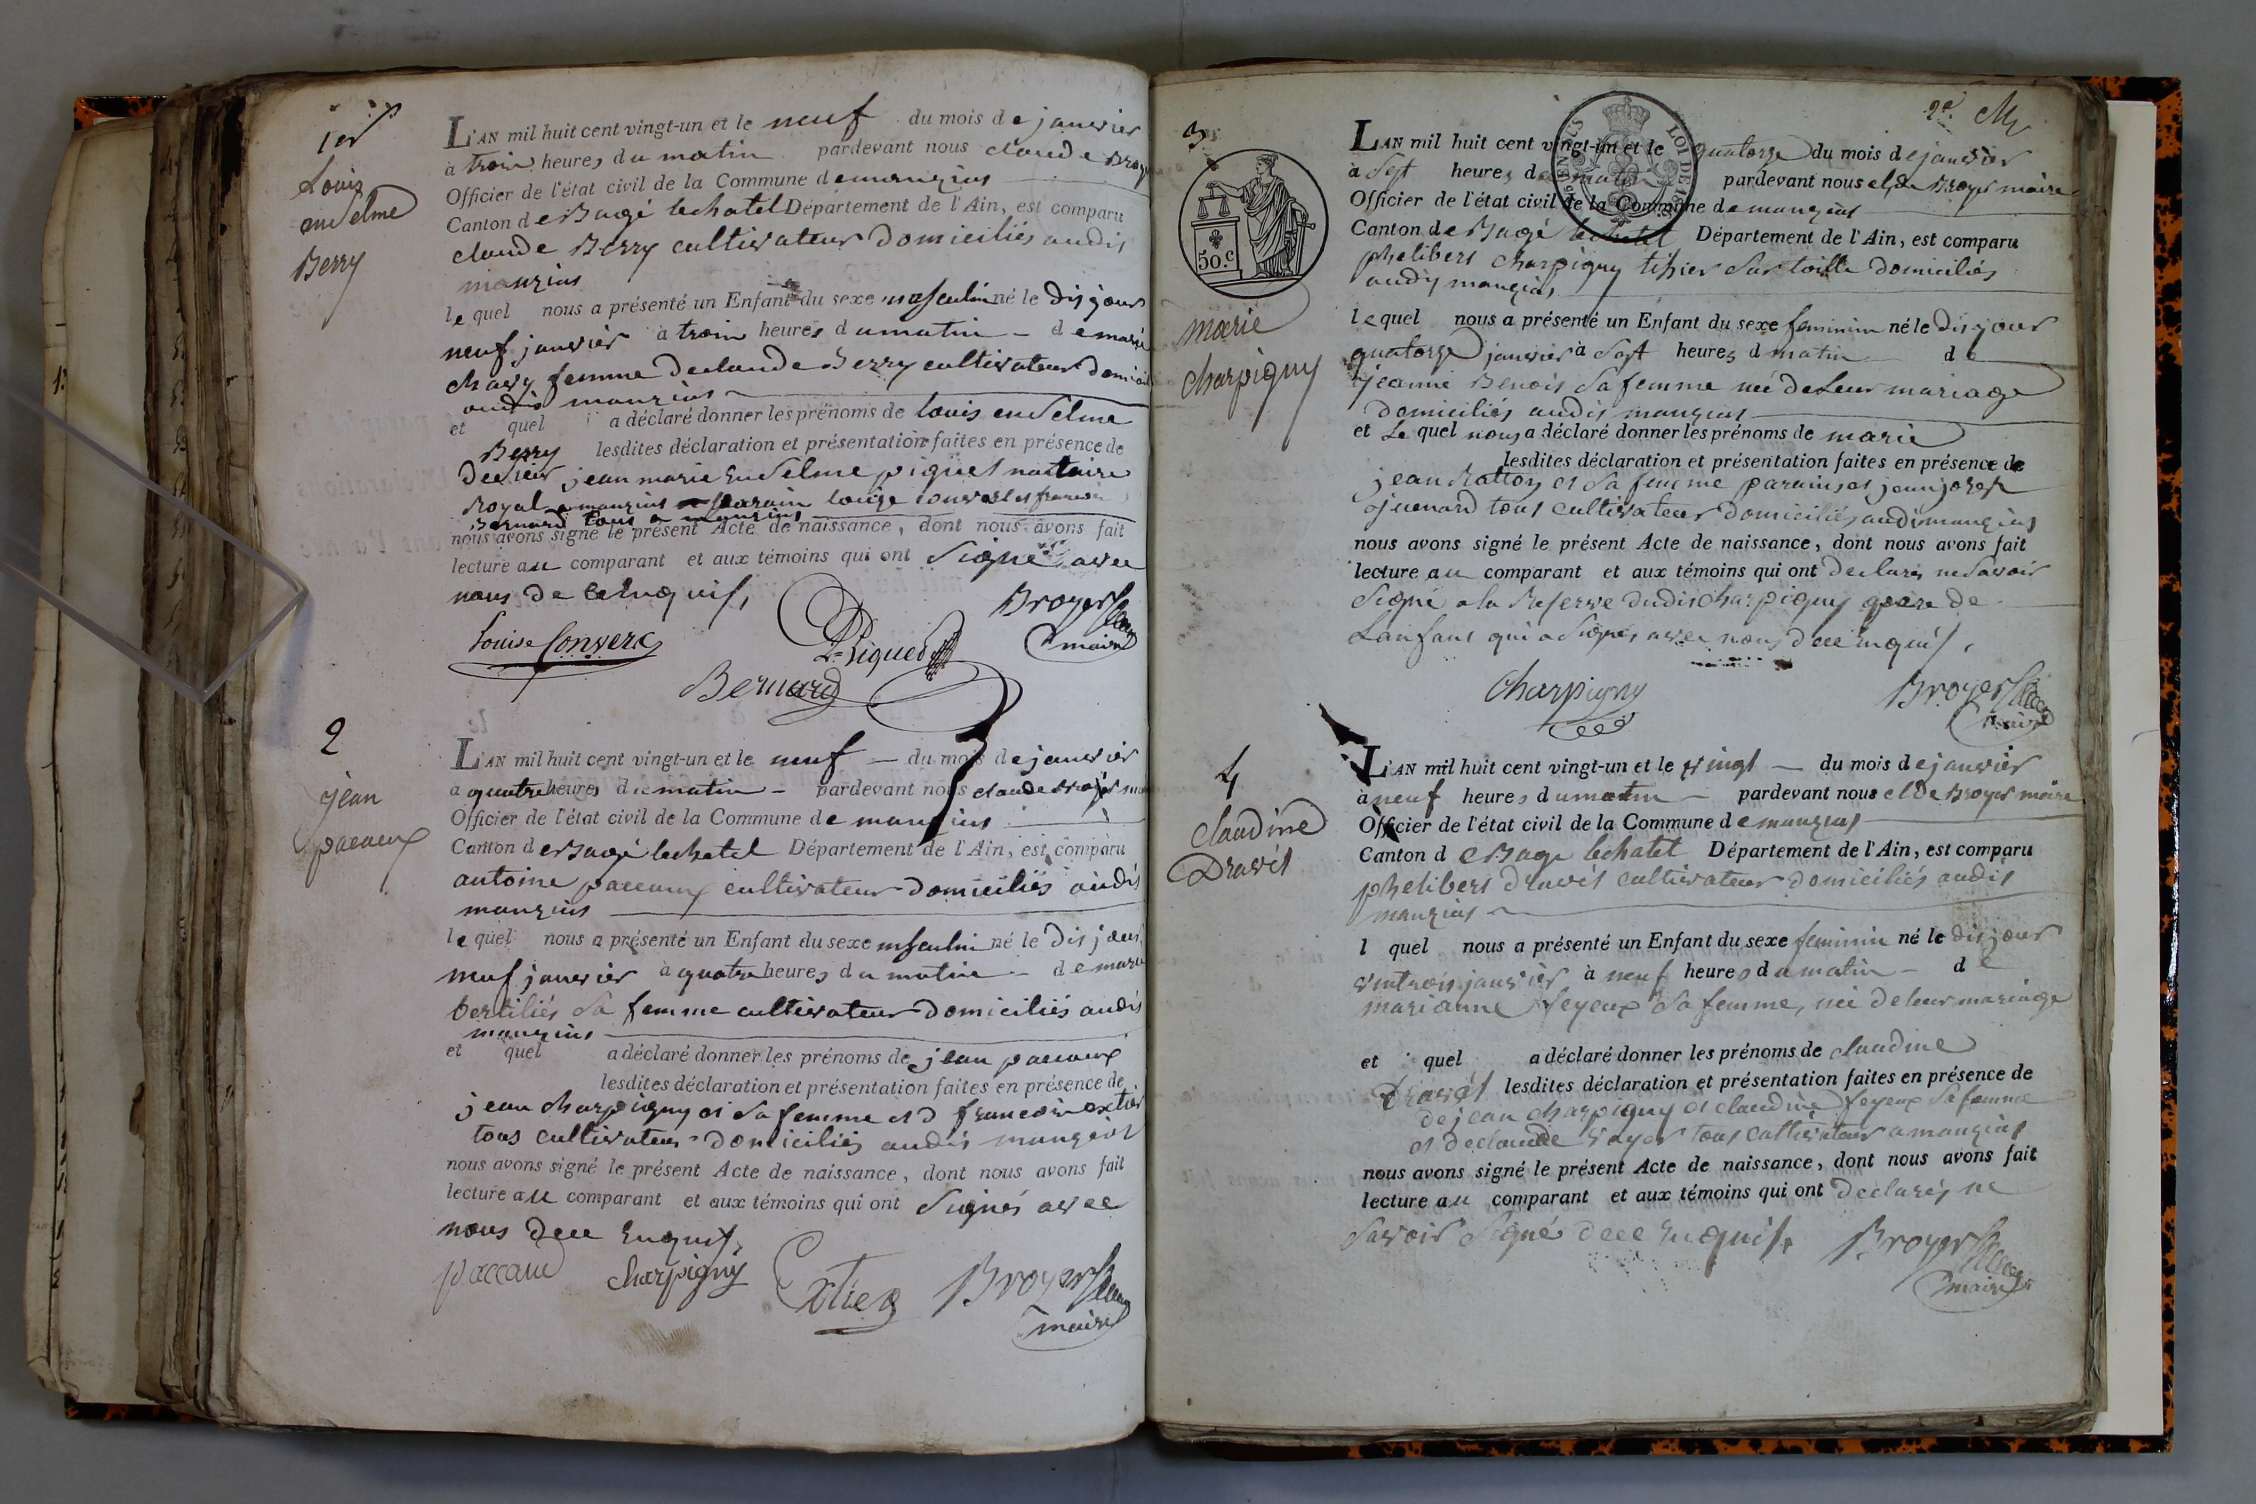 1er
Louis
enselme
Berry
L'AN mil huit cent vingt-un et le neuf du mois de janvier
à trois heures du matin pardevant nous claude Broyer
Officier de l'état civil de la Commune de manzias
Canton de Bagé lechatel Département de l'Ain, est comparu
claude Berry cultivateur domiciliés audis
manzias
le quel nous a présenté un Enfant du sexe masculin né le dis jour
neuf janvier à trois heures du matin de marie
chavy femme declaude Berry cultivateur
audis manzias
et quel a déclaré donner les prénoms de louis enselme
Berry lesdites déclaration et présentation faites en présence de
jean marie enselme piquet nautaire
Royal a manzias louise
Bernard tous a manzias
nous avons signé le présent Acte de naissance, dont nous avons fait
lecture au comparant et aux témoins qui ont signé avec
nous de ce enquis,
Louise Convert
Piquet
Broyer
maire
Bernard
2
jean
pacaux
L'AN mil huit cent vingt-un et le neuf du mois de janvier
à quatre heures du matin pardevant nous claude Broyer
Officier de l'état civil de la Commune de manzias
Canton de Bagé lechatel Département de l'Ain, est comparu
antoine paccaux cultivateur domiciliés audis
manzias
le quel nous a présenté un Enfant du sexe masculin né le dis jour
neuf janvier à quatre heures du matin de marie
sa femme cultivateur domiciliés audis
manzias
et quel a déclaré donner les prénoms de jean paccaux
lesdites déclaration et présentation faites en présence de
jean charpigny et sa femme et francois
tous cultivateur domiciliés audis manzias
nous avons signé le présent Acte de naissance, dont nous avons fait
lecture au comparant et aux témoins qui ont signés avec
nous dece enquis,
paccaud
charpigny
Broyer
maire
2e.
3
50.C
LOI DE
marie
charpigny
L'AN mil huit cent vingt-un et le quatorze du mois de janvier
à sept heures du matin pardevant nous clde Broyer maire
Officier de l'état civil de la Commune de manzias
Canton de Bagé lechatel Département de l'Ain, est comparu
phelibert charpigny tissier sur toille domiciliés
audis manzias
le quel nous a présenté un Enfant du sexe feminin né le dis jour
quatorze janvier à sept heures d matin de
jeanne Benois sa femme née deleur mariage
domiciliés audis manzias
et le quel nous a déclaré donner les prénoms de marie
lesdites déclaration et présentation faites en présence de
jean Ratton et sa femme parains et jean josep
juenard tous cultivateur domiciliés audis manzias
nous avons signé le présent Acte de naissance, dont nous avons fait
lecture au comparant et aux témoins qui ont declarés ne savoir
signé a la Reserve dudis charpigny père de
Lanfant qui a signés avec nous dece enquis,
charpigny
Broyer
maire
4
claudine
Dravet
L'AN mil huit cent vingt-un et le vingt du mois de janvier
à neuf heures du matin pardevant nous clde Broyer maire
Officier de l'état civil de la Commune de manzias
Canton de Bage lechatel Département de l'Ain, est comparu
phelibert dravet cultivateur domiciliés audis
manzias
l quel nous a présenté un Enfant du sexe feminin né le dis jour
janvier à neuf heures du matin de
marianne feyeux sa femme, née deleur mariage
et quel a déclaré donner les prénoms de claudine
Dravet lesdites déclaration et présentation faites en présence de
de jean charpigny et claudine feyeux sa femme
et declaude tous cultivateur a manzias
nous avons signé le présent Acte de naissance, dont nous avons fait
lecture au comparant et aux témoins qui ont declarés ne
savoir signé dece enquis,
Broyer
maire